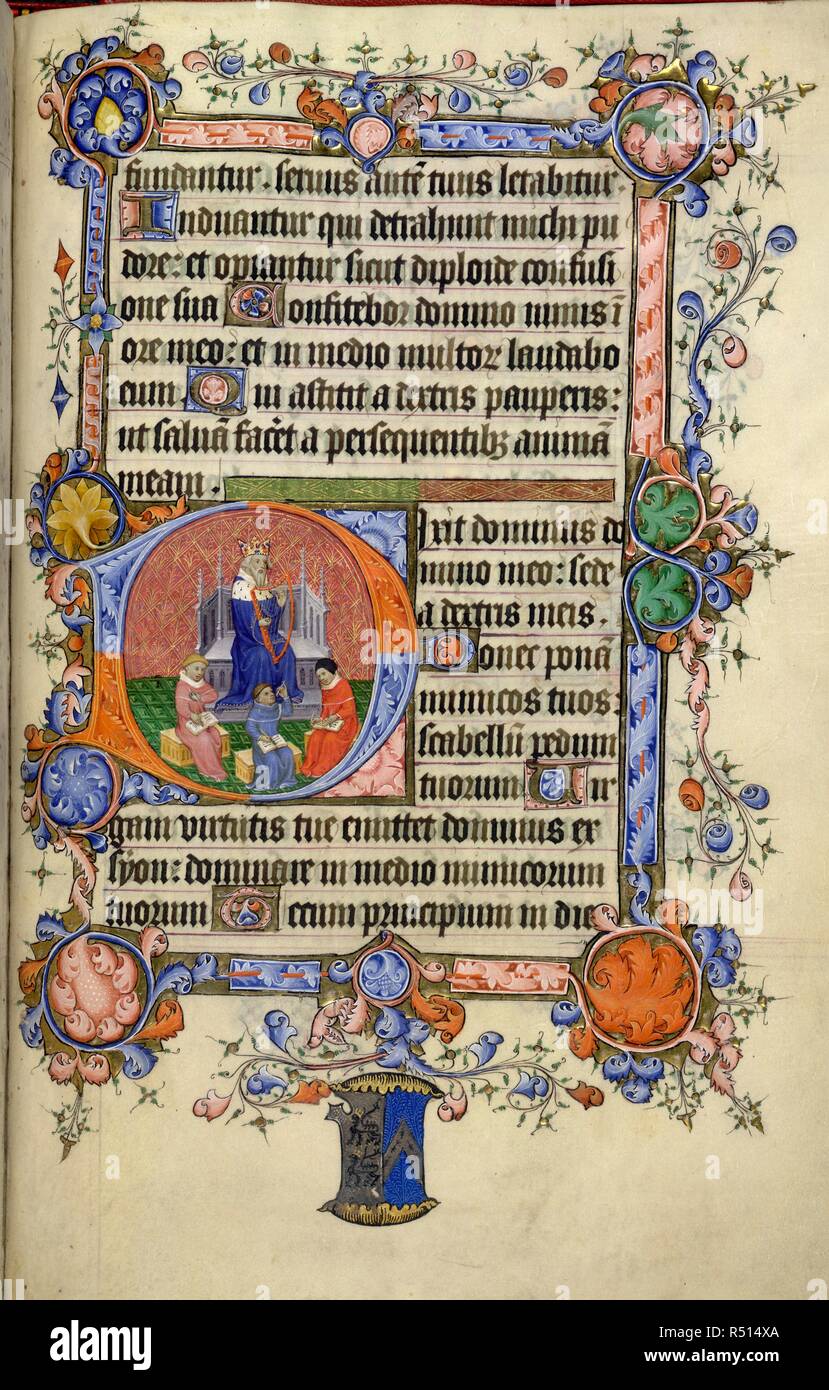 fundantur. seruus aute tuus letabitur.
Induantur qui detrahunt michi pu
dore: et operiantur sicut diploide confusi
one sua Confitebor domino nimis i
ore meo: et in medio multor laudabo
eum. Qui astitit a dextris pauperis:
ut saluā facēt a persequentibꝫ animā
meam.
Dixit dominus do
mino meo: sede
a dextris meis.
Donec ponā
inimicos tuos:
scabellū pedum
tuorum Uir
gam virtutis tue emittet dominus ex
syon: dominare in medio inimicorum
tuorum Tecum principium in die
alamy
alamy
Image ID: R514XA
www.alamy.com